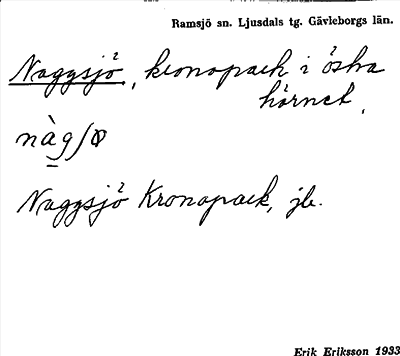 Ramsjö sn. Ljusdals tg. Gävleborgs län.
Naggsjö, kronopark i östra
hörnet,
nàgʃω
Naggsjö Kronopark, jb.
Erik Eriksson 1933